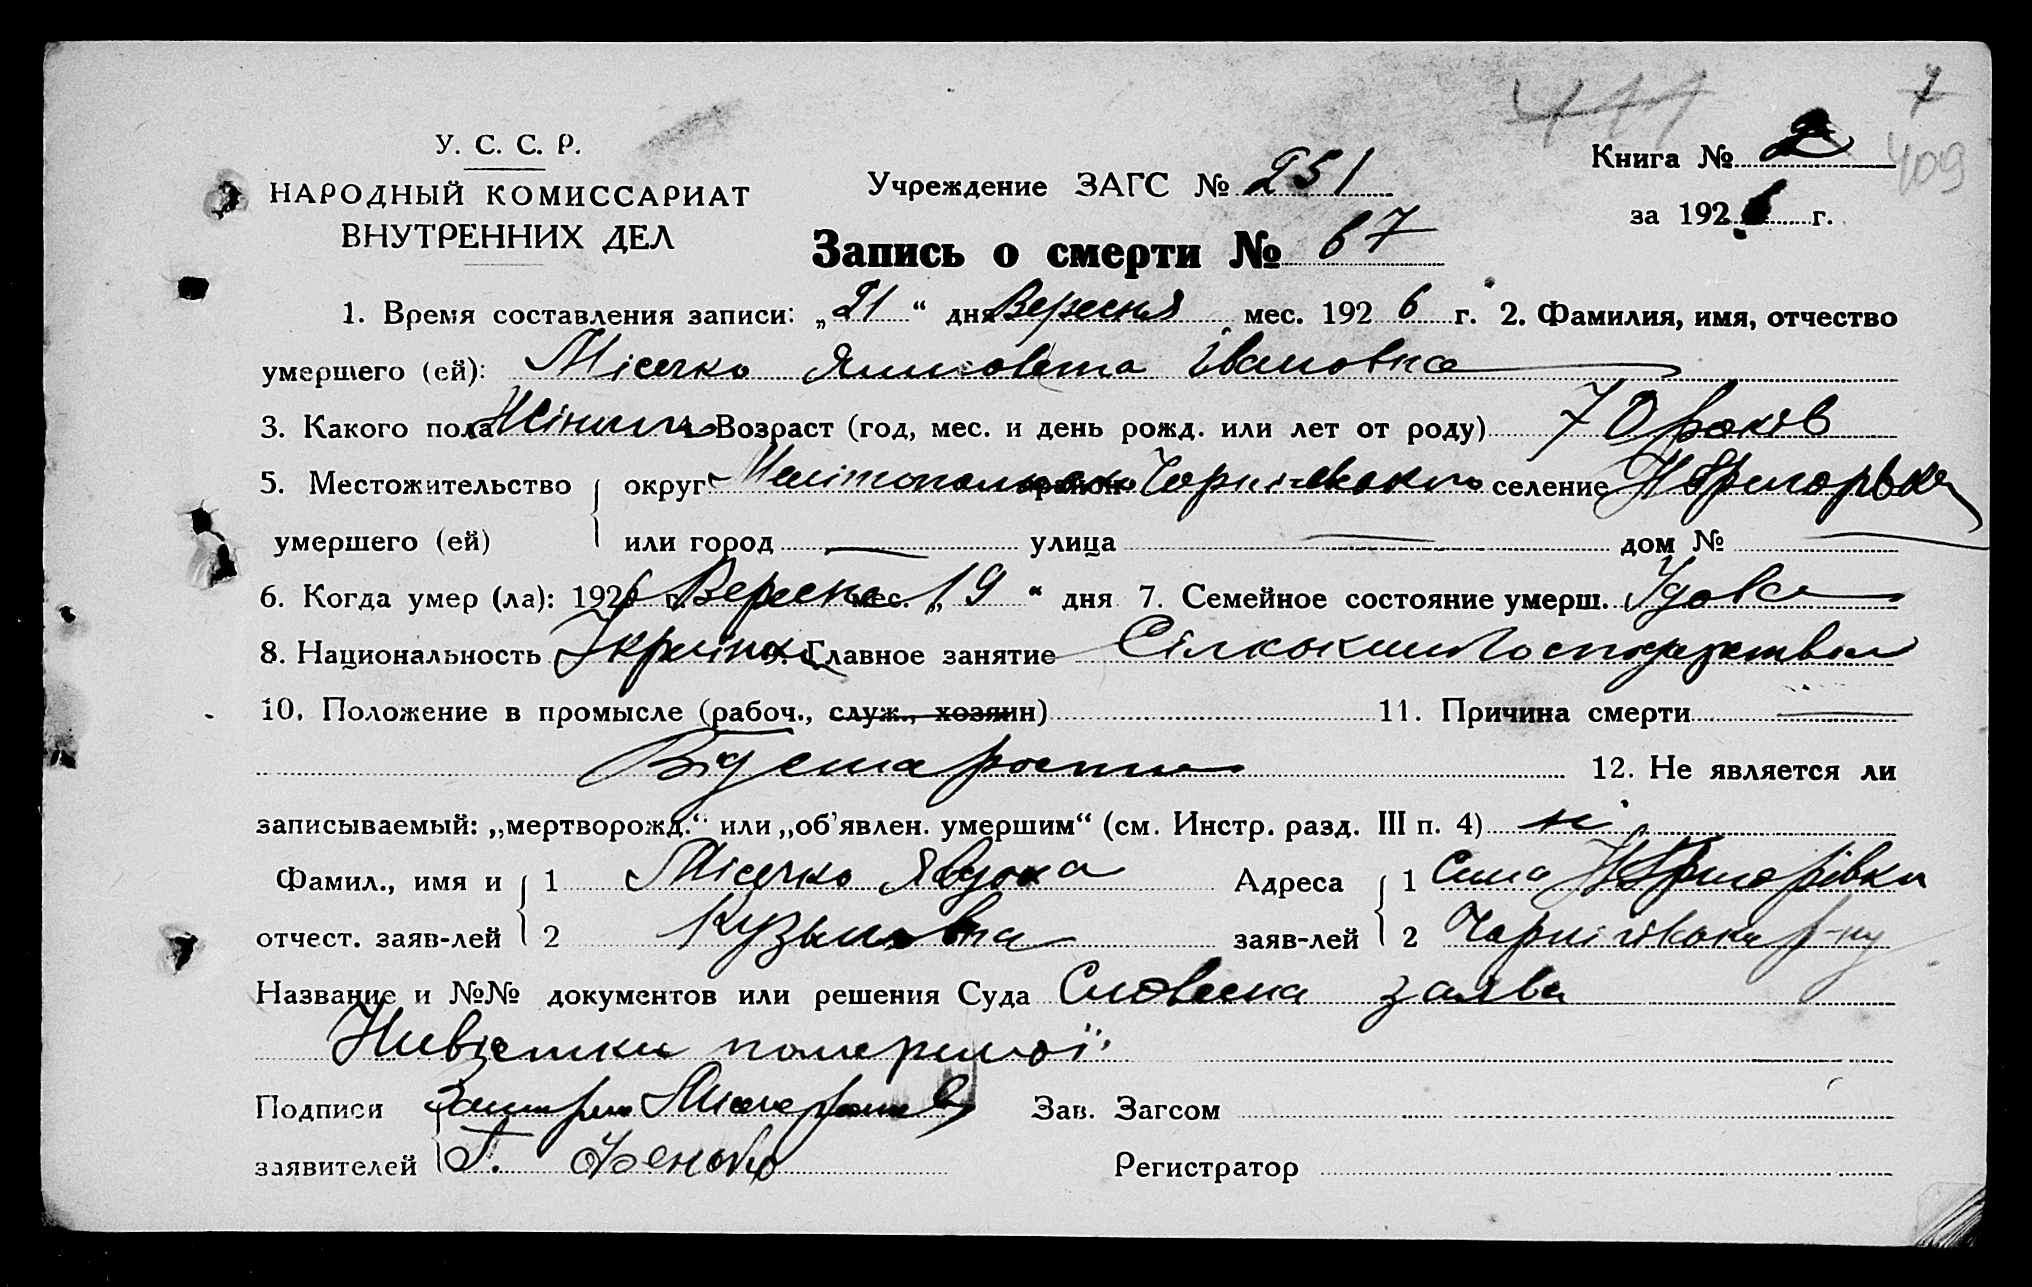 411
7
409
У. С. С. Р.
НАРОДНЫЙ КОМИССАРИАТ
ВНУТРЕННИХ ДЕЛ
Учреждение ЗАГС № 251
Книга № 2
за 1926 г.
Запись о смерти № 67
1. Время составления записи: „21“ дня Вересня мес. 1926 г. 2. Фамилия, имя, отчество
умершего (ей): Місечко Івановна
3. Какого пола Жіноч. 4. Возраст (год, мес. и день рожд. или лет от роду) 70 років
5. Местожительство округ район селение Н Григорівка
умершего (ей) или город — улица — дом № —
6. Когда умер (ла): 1926 г. Вересня мес. „19“ дня 7. Семейное состояние умерш. Удова
8. Национальность Украінка 9. Главное занятие
10. Положение в промысле (рабоч., служ., хозяин) 11. Причина смерти —
Від старости 12. Не является ли
записываемый: „мертворожд.“ или „об’явлен. умершим“ (см. Инстр. разд. III п. 4) ні
Фамил., имя и 1 Місечко Явдоха Адреса 1 Села Н Григорівки
отчест. заяв-лей 2 Кузьмовна заяв-лей 2 р-ну
Название и №№ документов или решения Суда Словесна заява
Нивістки помершої
Подписи Зав. Загсом
заявителей Регистратор